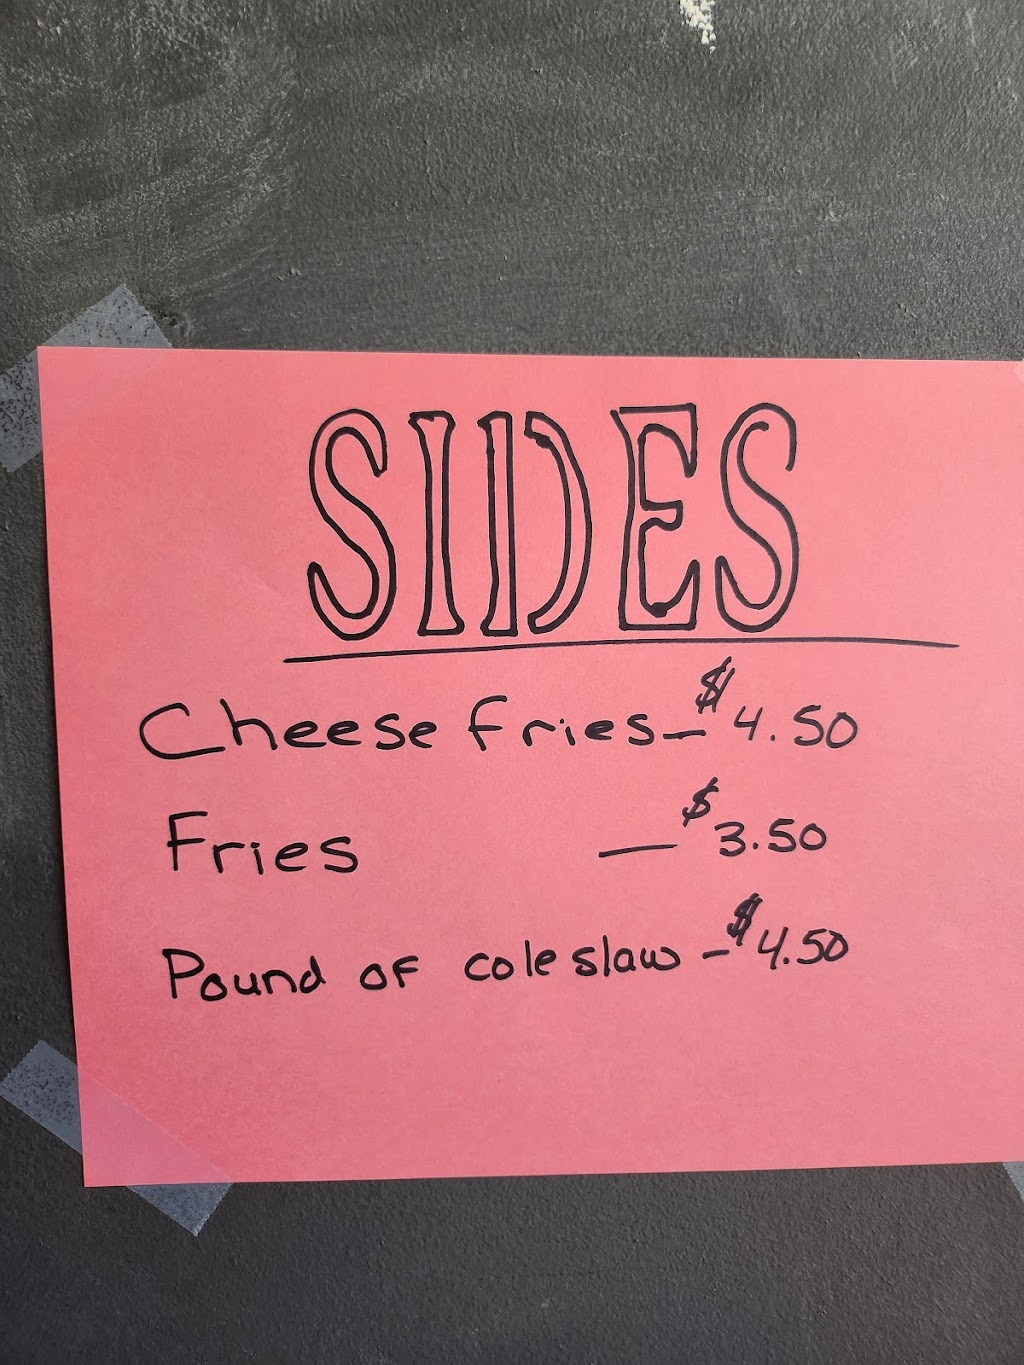 SIDES
Cheese fries - $4.50
Fries — $3.50
Pound of coleslaw - $4.50